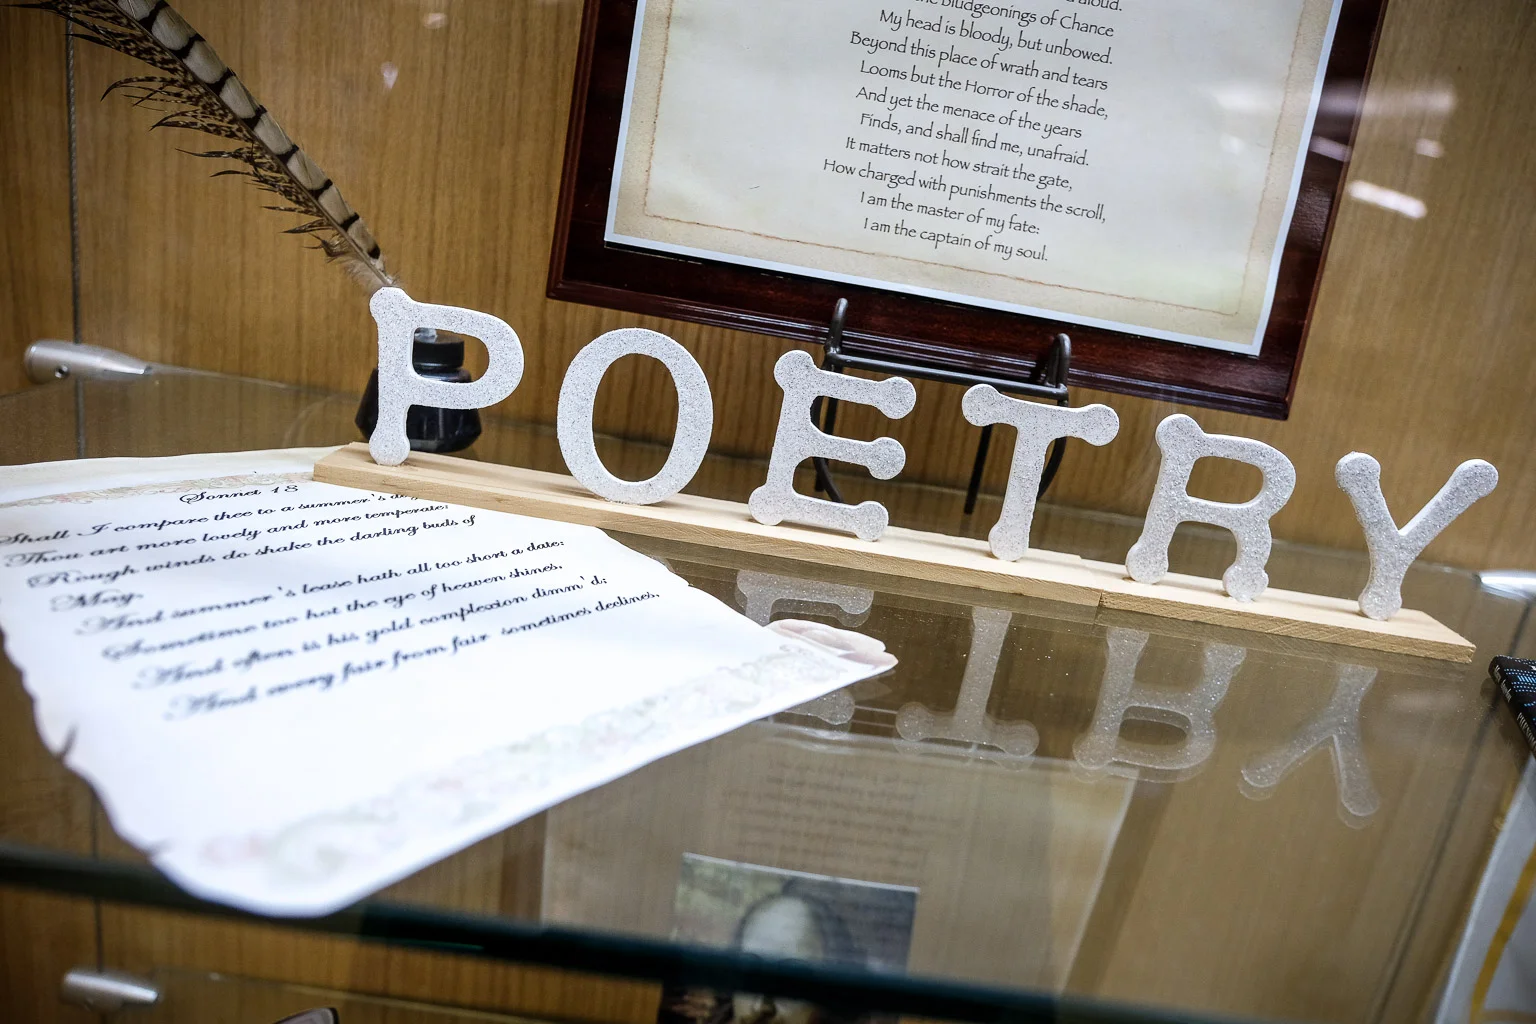 aloud.
bludgeonings of Chance
My head is bloody, but unbowed.
Beyond this place of wrath and tears
Looms but the Horror of the shade,
And yet the menace of the years
Finds, and shall find me, unafraid.
It matters not how strait the gate,
How charged with punishments the scroll,
I am the master of my fate:
I am the captain of my soul.
POETRY
Sonnet 18
Shall I compare thee to a summer's
Thou art more lovely and more temperate:
Rough winds do shake the darling buds of
May,
And summer's lease hath all too short a date:
Sometime too hot the eye of heaven shines,
And often is his gold complexion dimm'd;
And every fair from fair sometimes declines,